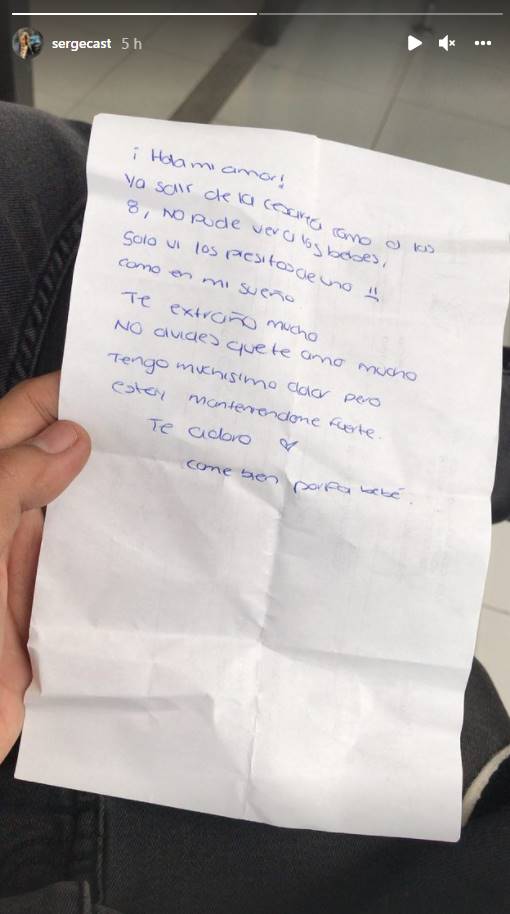 sergecast 5 h
¡Hola mi amor!
Ya salí de la cesárea como a las
8, NO pude ver a los bebés,
Solo vi los piesitos de uno !!
como en mi sueño
Te extraño mucho
NO olvides que te amo mucho
Tengo muchisimo dolor pero
estoy manteniendome fuerte.
Te adoro
come bien porfa bebé.